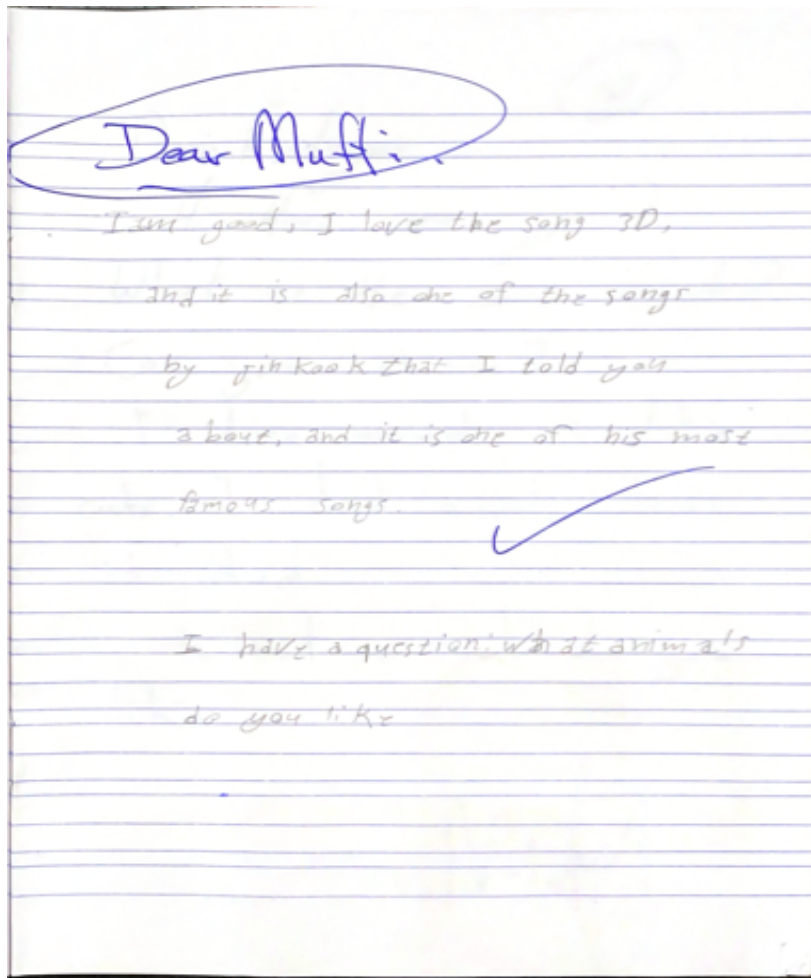 Dear Muffi..
I am good, I love the song 3D,
and it is also one of the songs
by jin kook that I told you
about, and it is one of his most
famous songs.
I have a question: what animals
do you like